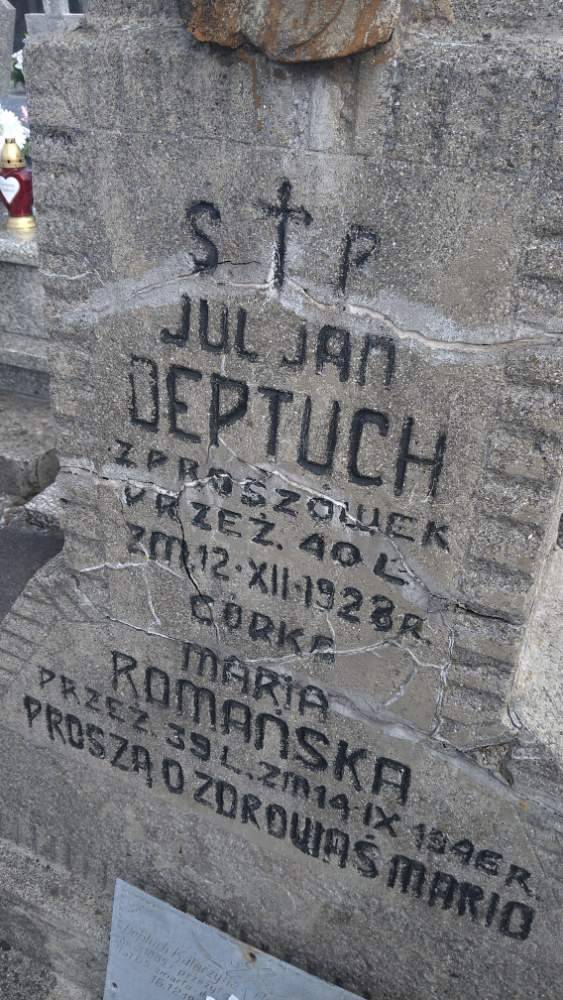 S † P
JULJAN
DEPTUCH
Z PROSZÓWEK
PRZEŻ. 40 L
ZM. 12·XII·1928R.
CÓRKA
MARIA
ROMAŃSKA
PRZEŻ. 39 L. ZM 14·IX 1946R.
PROSZĄ O ZDROWAŚ MARIO